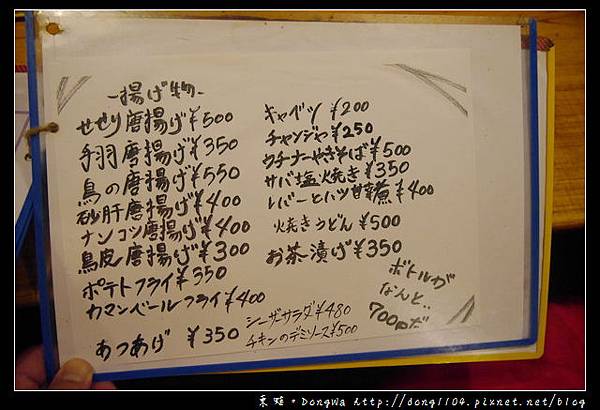 -揚げ物-
せせり唐揚げ¥500
手羽唐揚げ¥350
鳥の唐揚げ¥550
砂肝唐揚げ¥400
ナンコツ唐揚げ¥400
鳥皮唐揚げ¥300
ポテトフライ¥350
カマンベールフライ¥400
あつあげ ¥350
キャベツ ¥200
チャンジャ¥250
ウチナーやきそば¥500
サバ塩焼き¥350
レバーとハツ甘辛煮¥400
焼きうどん¥500
お茶漬け¥350
シーザーサラダ¥480
チキンのデミソース¥500
ボトルが
なんと..
700mだ
東雅。DongWa http://dong1104.pixnet.net/blog